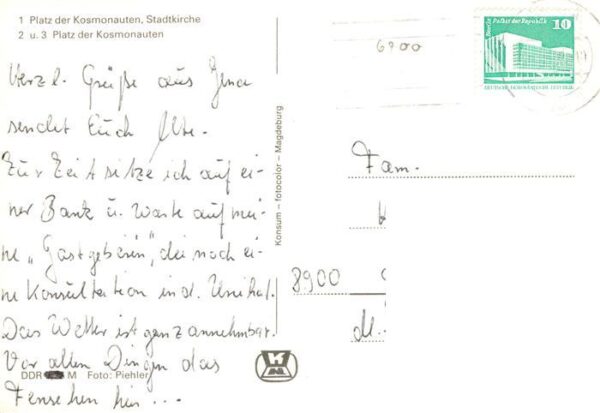 1 Platz der Kosmonauten, Stadtkirche
2 u. 3 Platz der Kosmonauten
Herzl. Grüße aus Jena
sendet Euch Ute.
Zur Zeit sitze ich auf ei-
ner Bank u. warte auf mei-
ne „Gastgeberin", die noch ei-
ne Konsultation in d. Uni hat.
Das Wetter ist ganz annehmbar.
Vor allen Dingen das
Fernsehen hier...
DDR M Foto: Piehler
Konsum – fotocolor – Magdeburg
6900
Berlin Palast der Republik 10
DEUTSCHE DEMOKRATISCHE REPUBLIK
Fam.
8900